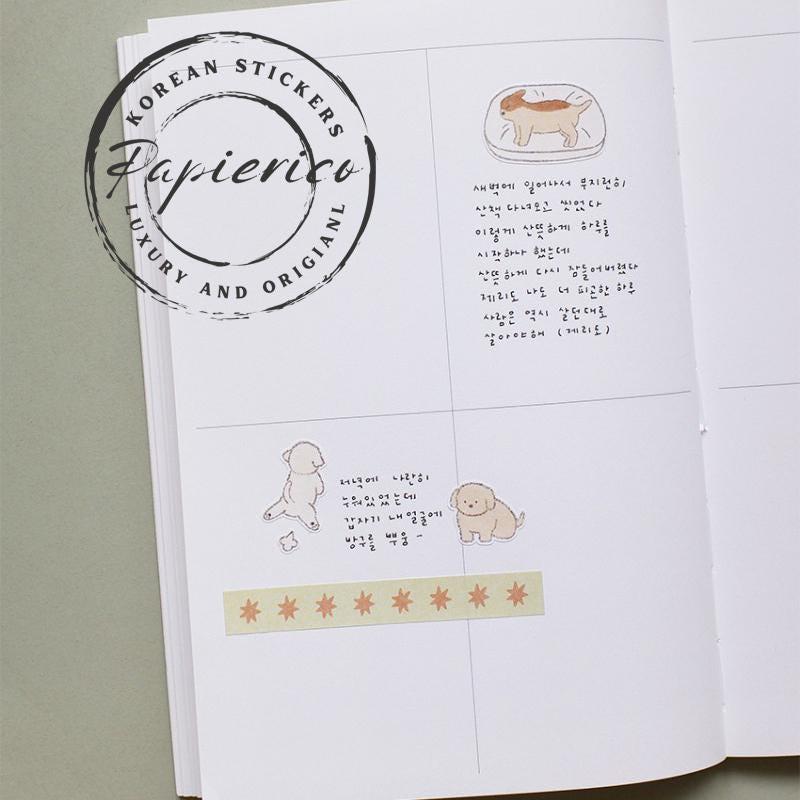 KOREAN STICKERS
Papierico
LUXURY AND ORIGIANL
새벽에 일어나서 부지런히
산책 다녀오고 씻었다
이렇게 산뜻하게 하루를
시작하나 했는데
산뜻하게 다시 잠들어버렸다
제리도 나도 너 피곤한 하루
사람은 역시 살던대로
살아야해 (제리도)
저녁에 나란히
누워있었는데
갑자기 내 얼굴에
방구를 뿌웅-